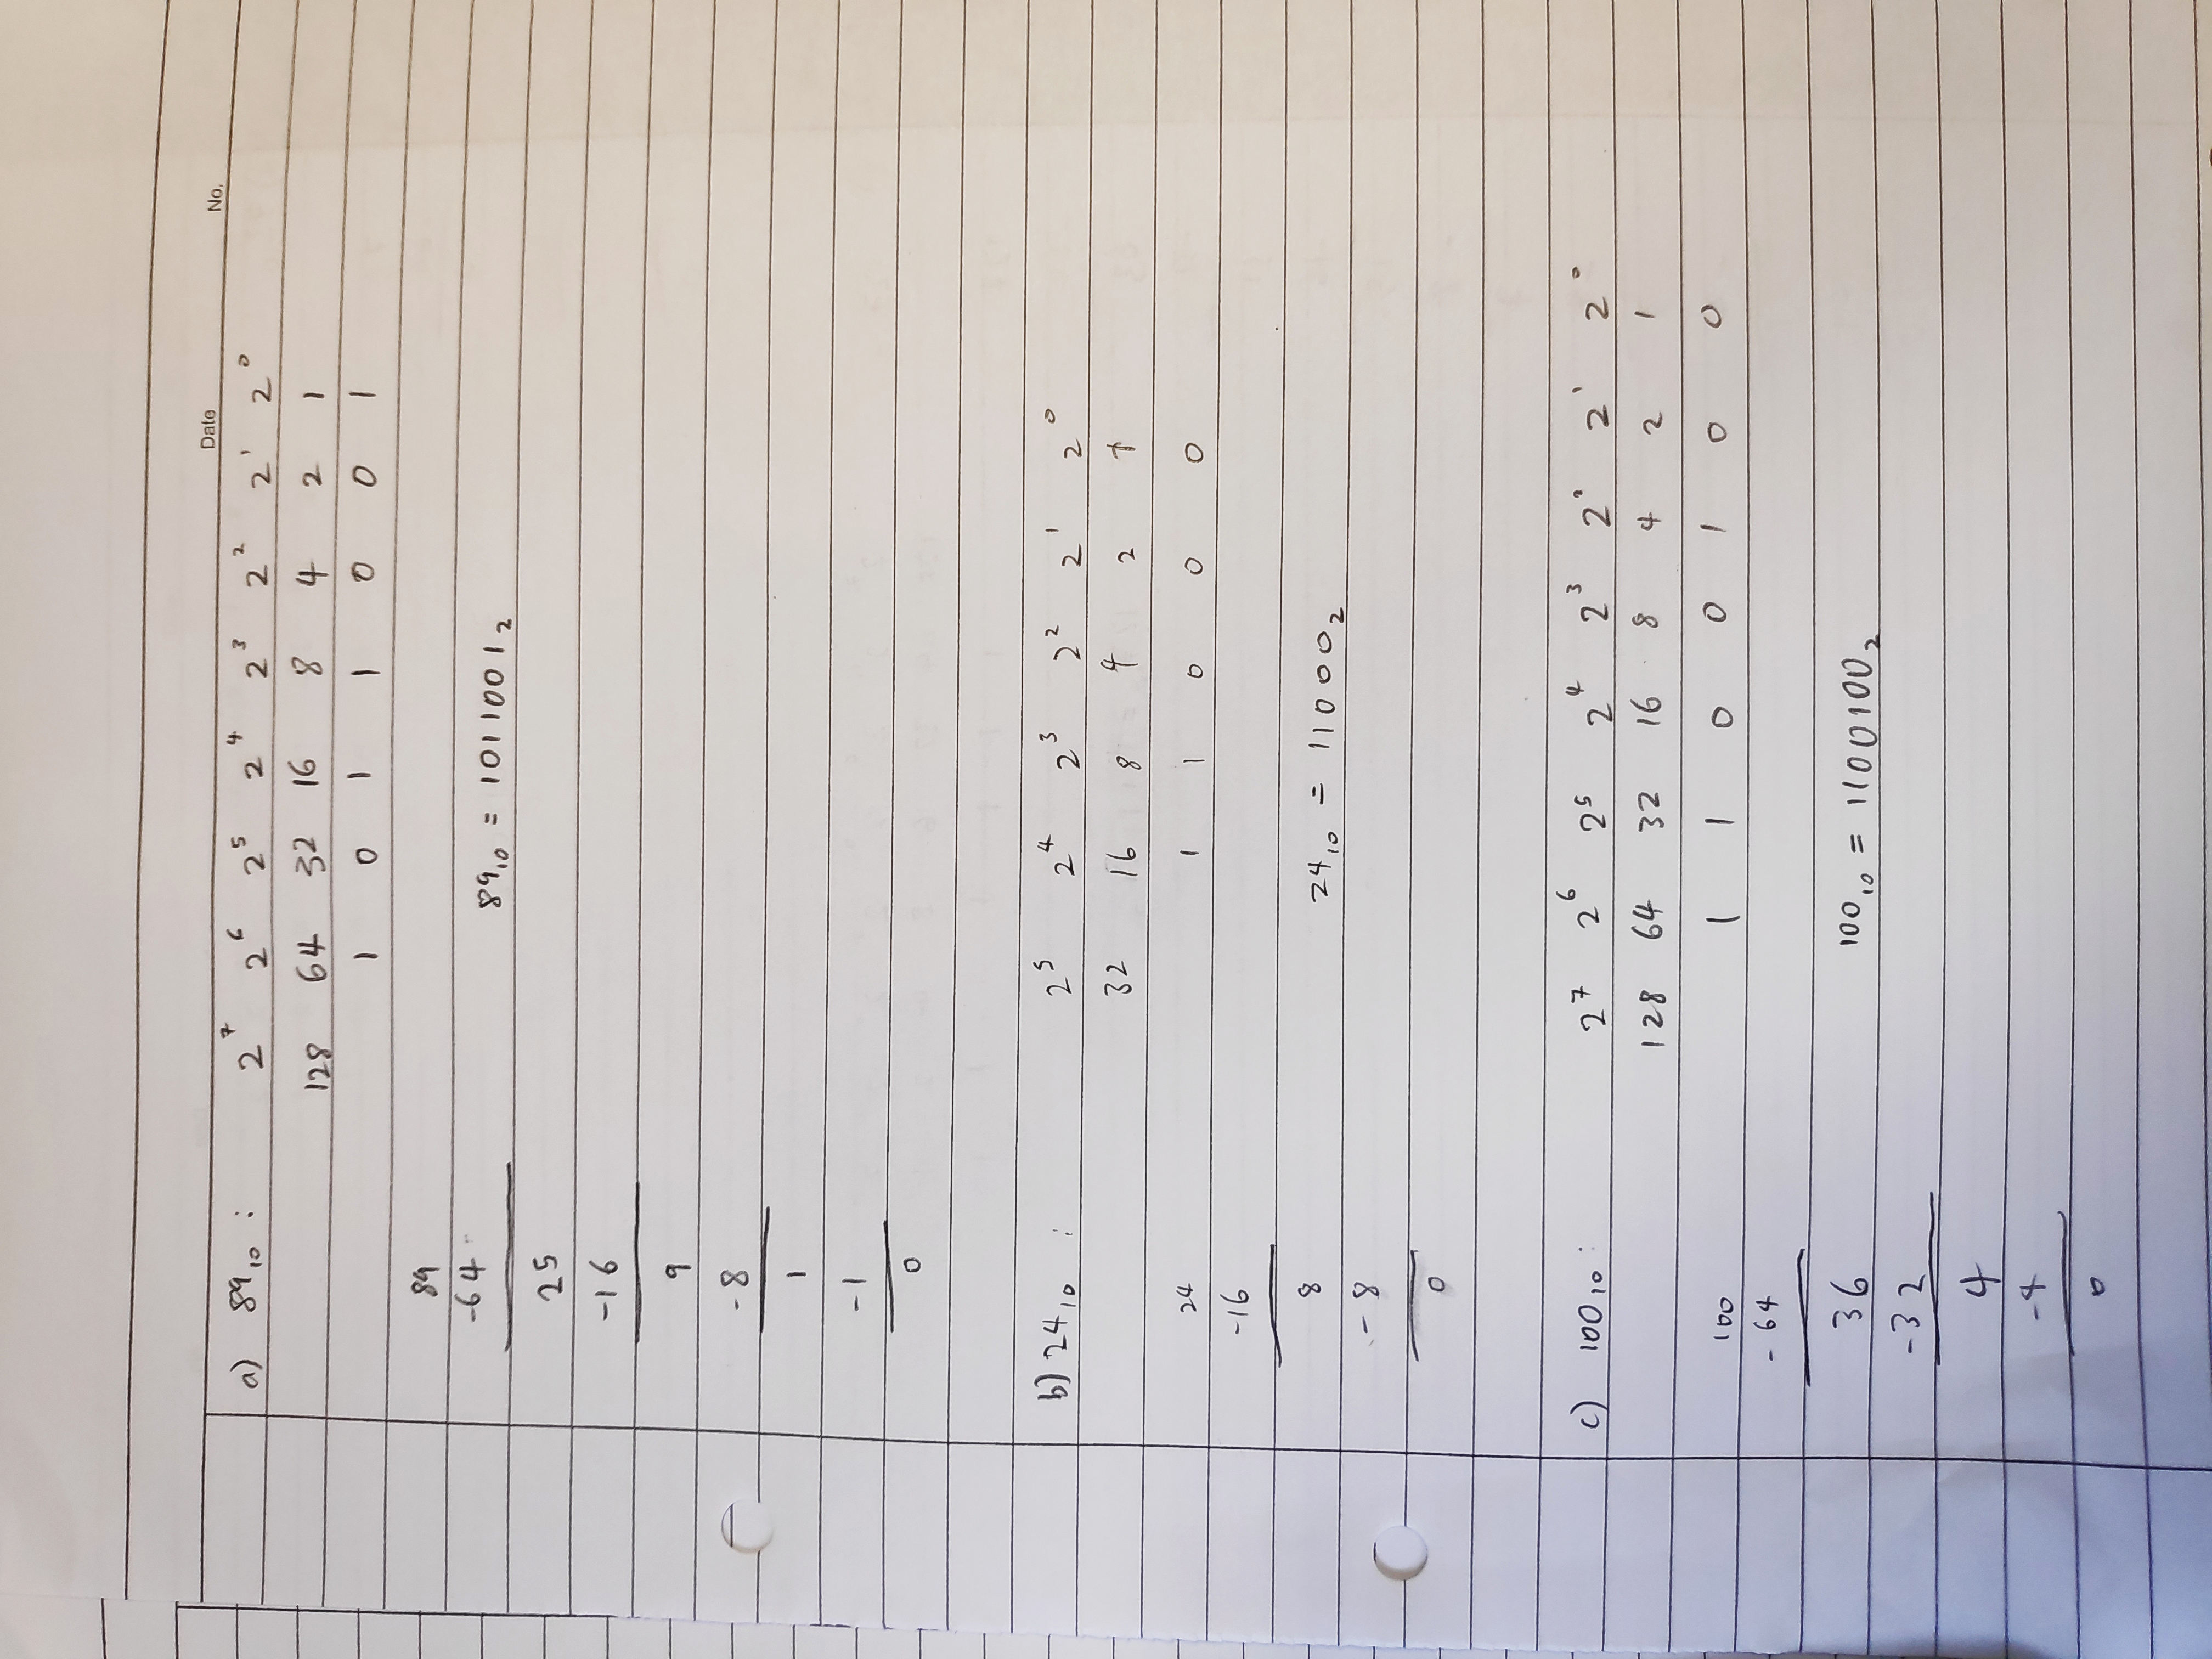 Date No.
a) 89₁₀ : 2⁷ 2⁶ 2⁵ 2⁴ 2³ 2² 2¹ 2⁰
128 64 32 16 8 4 2 1
1 0 1 1 0 0 1
89
-64
89₁₀ = 1011001₂
25
-16
9
-8
1
-1
0
b) 24₁₀ : 2⁵ 2⁴ 2³ 2² 2¹ 2⁰
32 16 8 4 2 1
24 1 1 0 0 0
-16
8 24₁₀ = 11000₂
-8
0
c) 100₁₀ : 2⁷ 2⁶ 2⁵ 2⁴ 2³ 2² 2¹ 2⁰
128 64 32 16 8 4 2 1
100 1 1 0 0 1 0 0
-64
36 100₁₀ = 1100100₂
-32
4
-4
0